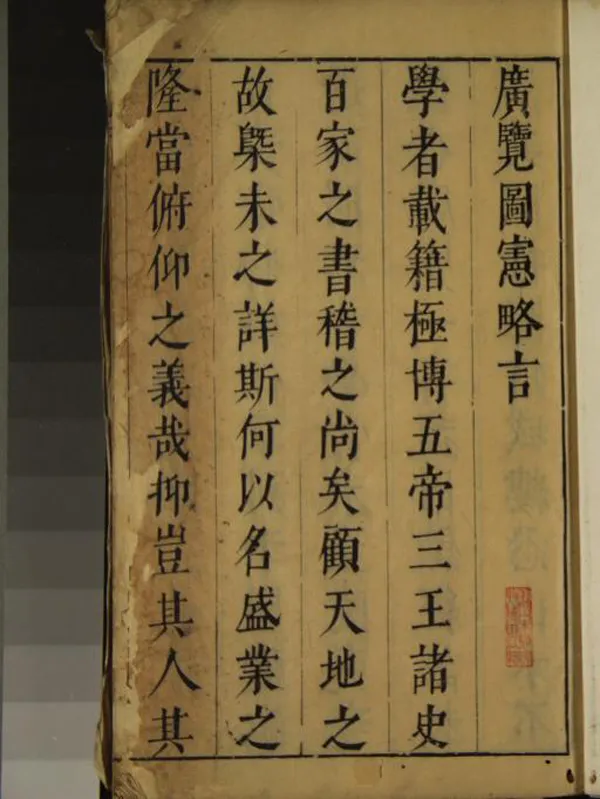 廣覽圖憲略言
學者載籍極博五帝三王諸史
百家之書稽之尚矣顧天地之
故槩未之詳斯何以名盛業之
隆當俯仰之義哉抑豈其人其